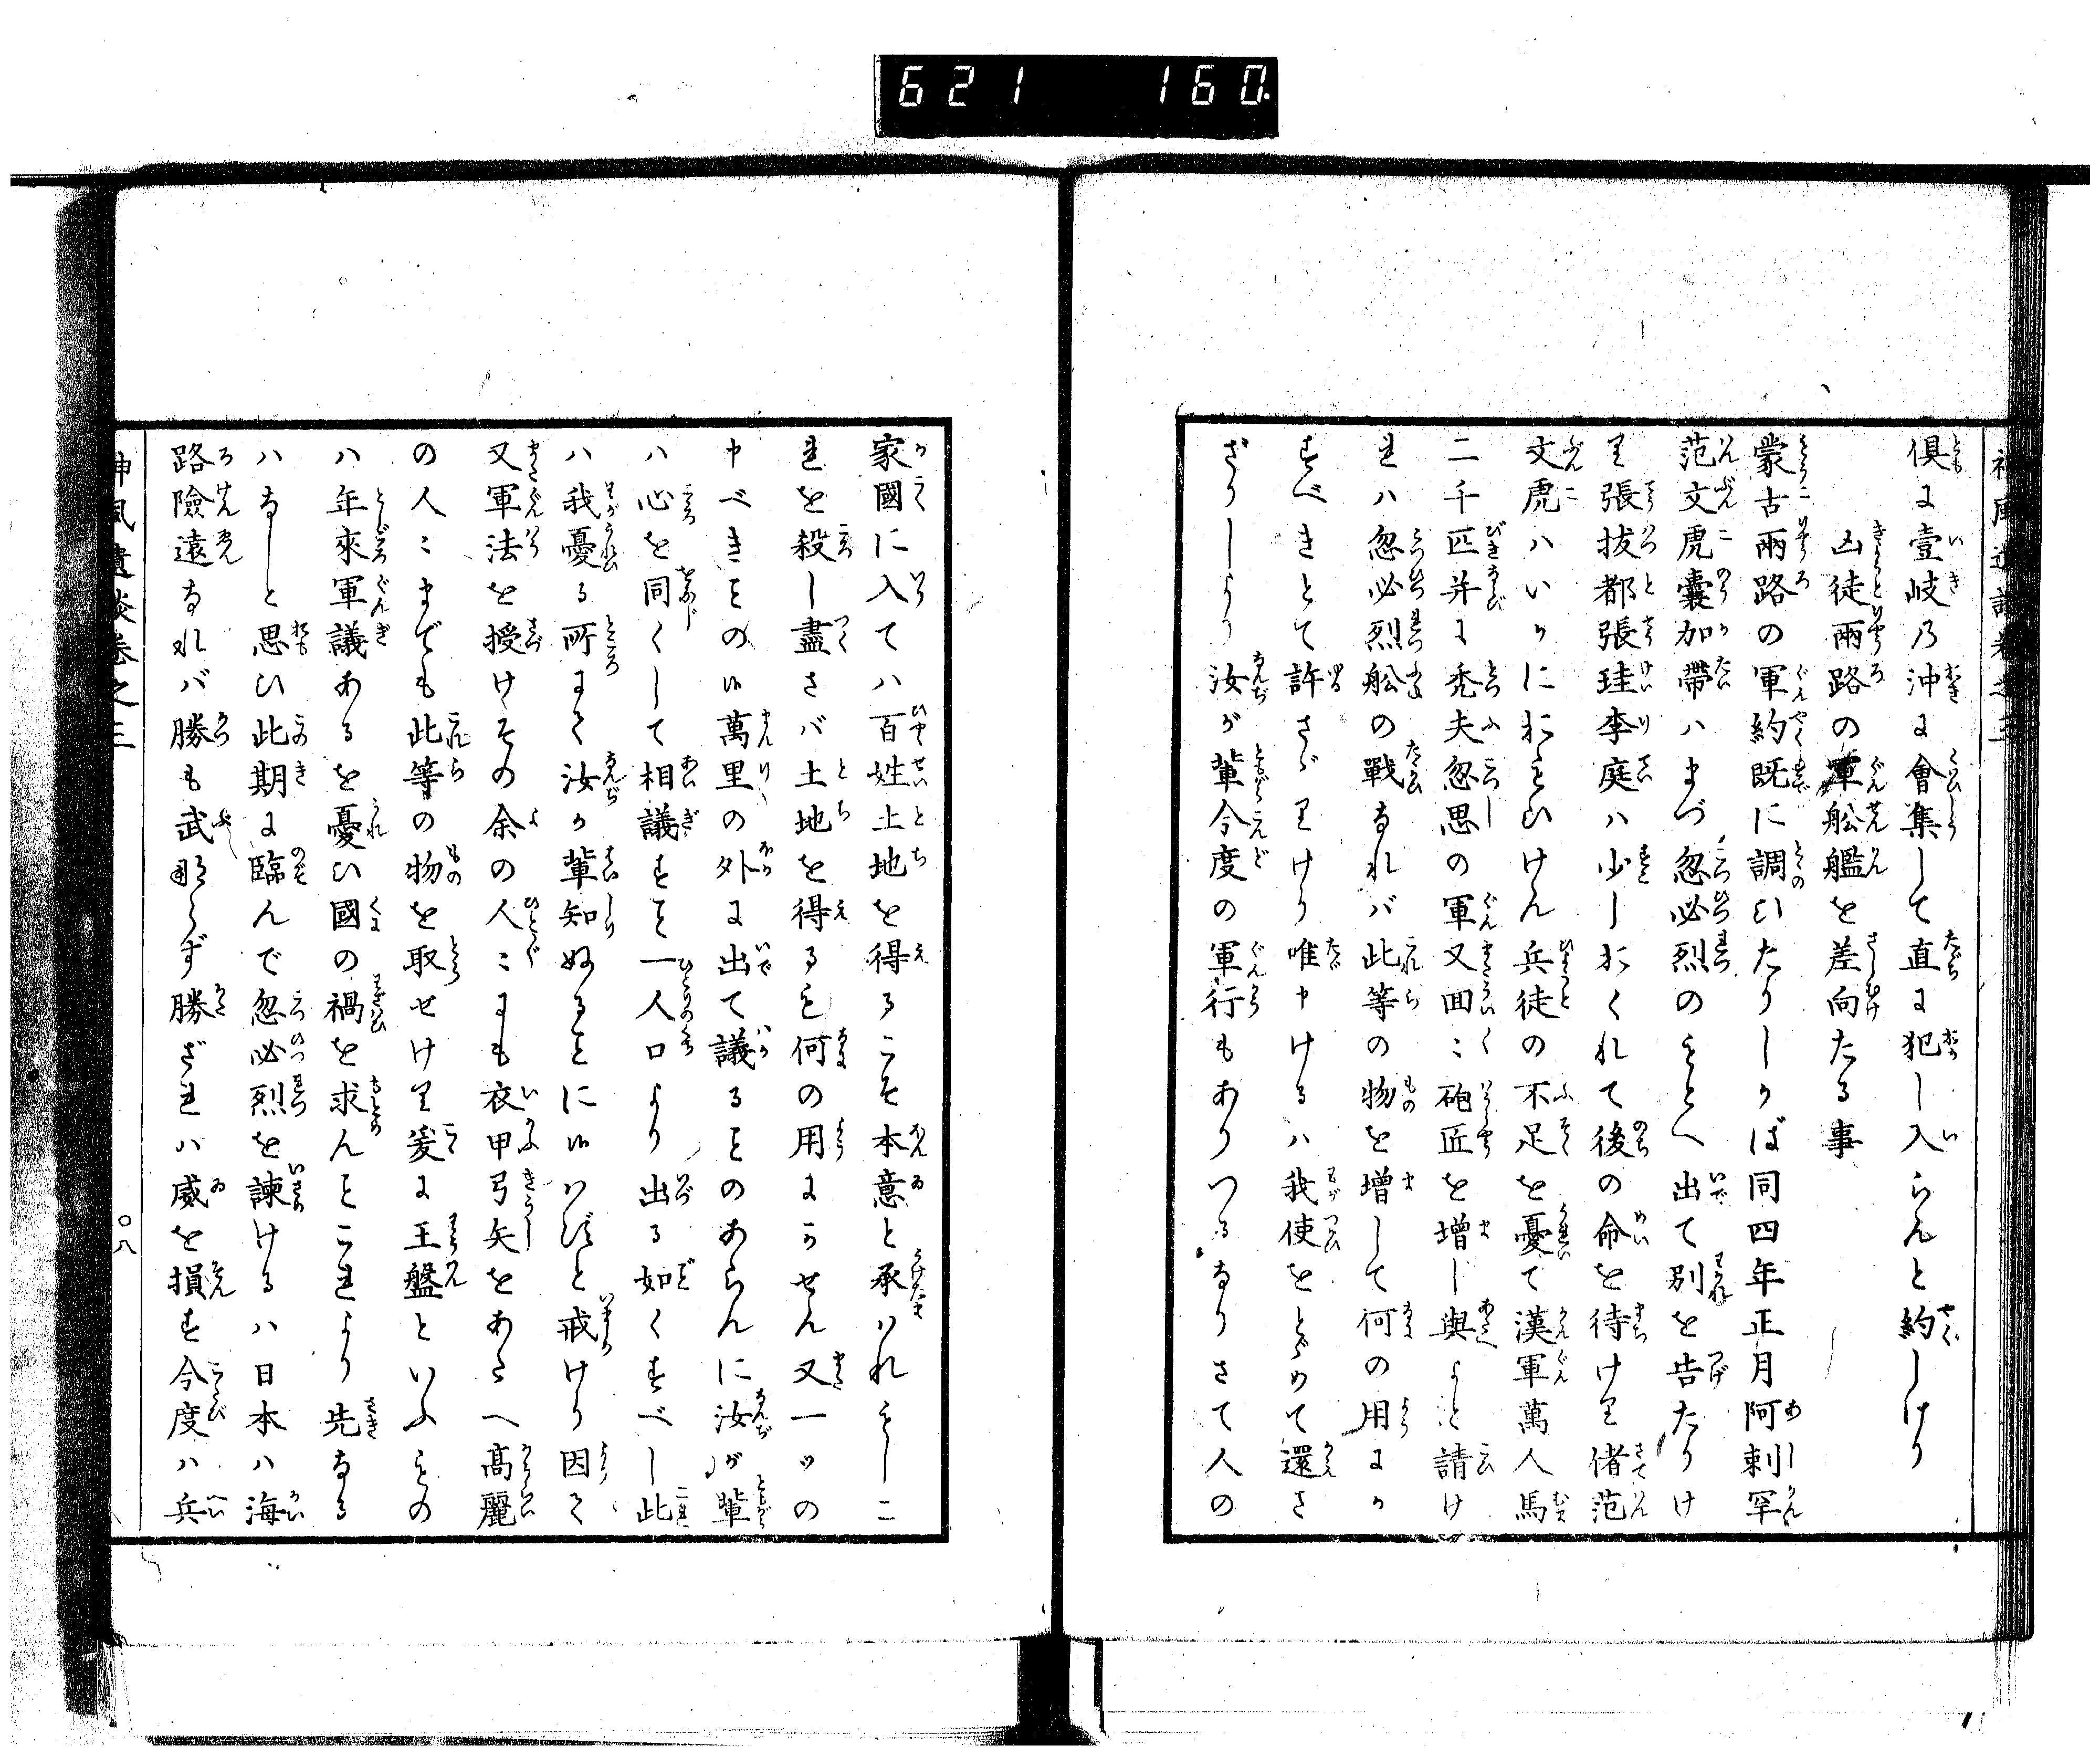 621 160.
倶に壹岐乃沖に會集して直に犯し入らんと約しけり
凶徒兩路の軍舩艦を差向たる事
蒙古兩路の軍約既に調ひたりしかば同四年正月阿剌罕
范文虎囊加帶ハまづ忽必烈のもとへ出て別を告たりけ
り張拔都張珪李庭ハ少しおくれて後の命を待けり偖范
文虎ハいかにおもひけん兵徒の不足を憂て漢軍萬人馬
二千匹并に禿夫忽思の軍又回々砲匠を増し與よと請け
れハ忽必烈舩の戰なれバ此等の物を増して何の用にか
すべきとて許さゞりけり唯申けるハ我使をとゞめて還さ
ざりしより汝が輩今度の軍行もありつるなりさて人の
家國に入てハ百姓土地を得るこそ本意と承ハれもしこ
れを殺し盡さバ土地を得るも何の用にかせん又一ッの
申べきもの候萬里の外に出て議るものあらんに汝が輩
ハ心を同くして相議すも一人口より出る如くすべし此
ハ我憂る所にて汝か輩知ぬるもに候ハずと戒けり因て
又軍法を授けその余の人々にも衣甲弓矢をあたへ髙麗
の人々までも此等の物を取せけり爰に王盤といふもの
ハ年來軍議あるを憂ひ國の禍を求んもこれより先なる
ハなしと思ひ此期に臨んで忽必烈を諫けるハ日本ハ海
路險遠なれバ勝も武ならず勝ざれハ威を損す今度ハ兵
神風遺談卷之三
〇八